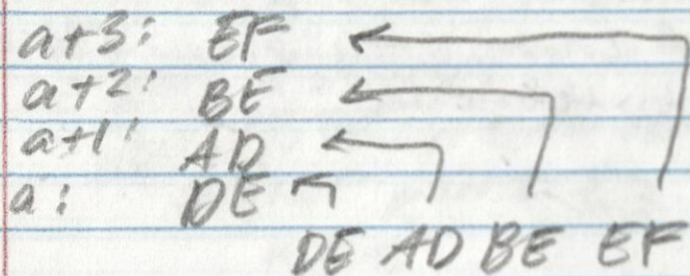 a+3: EF
a+2: BE
a+1: AD
a: DE
DE AD BE EF